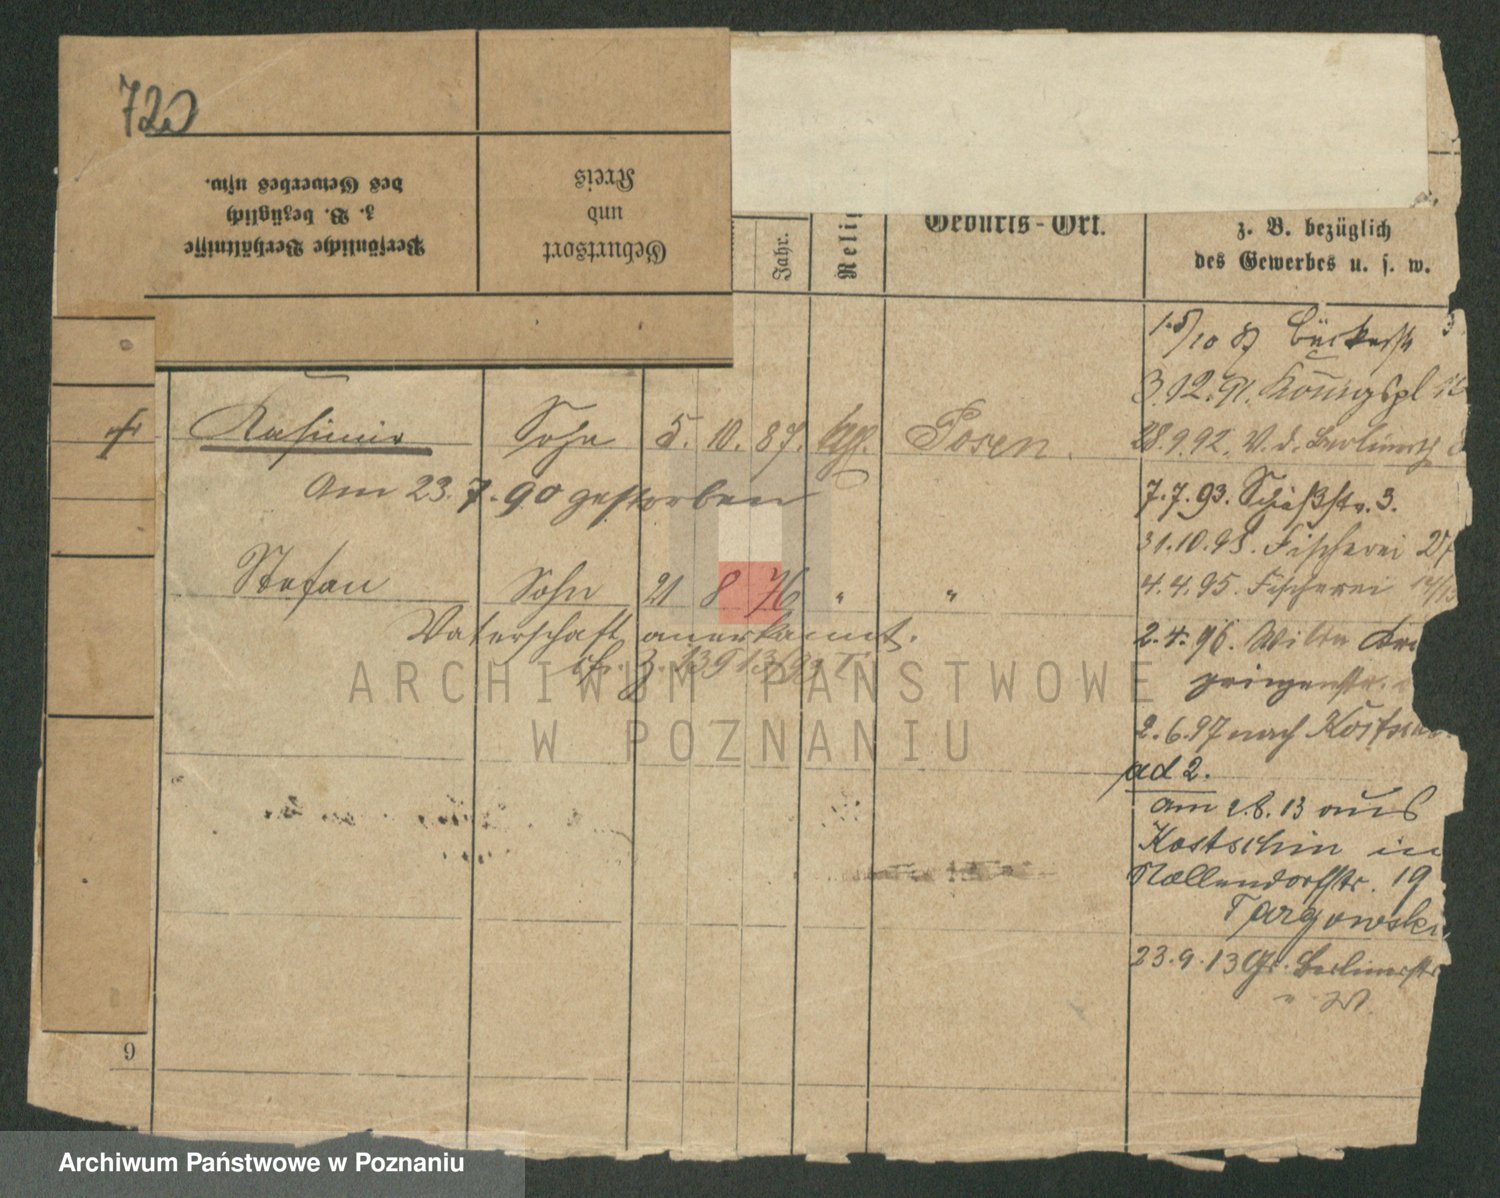 720
Persönliche Verhältnisse
z. B. bezüglich
des Gewerbes usw.
Geburtsort
und
Kreis
Jahr.
Relig
Geburts-Ort.
z. B. bezüglich
des Gewerbes u. s. w.
Kasimir Sohn 5. 10. 87. kath. Posen.
Am 23. 7. 90 gestorben
Stefan Sohn 21 8 76 " "
Vaterschaft anerkannt.
3.12.91. Königspl
28.9.92. V. d. Berlinerth
7.7.93. Schießstr. 3.
31.10.93. Fischerei 27
4.4.95. Fischerei
2.4.96. Wilda
2.6.97 nach Kostschin
ad 2.
am 2.8.13 aus
Kostschin in
Nollendorfstr. 19
Targowski
23.9.13 Gr. Berlinerstr
9
ARCHIWUM PAŃSTWOWE
W POZNANIU
Archiwum Państwowe w Poznaniu